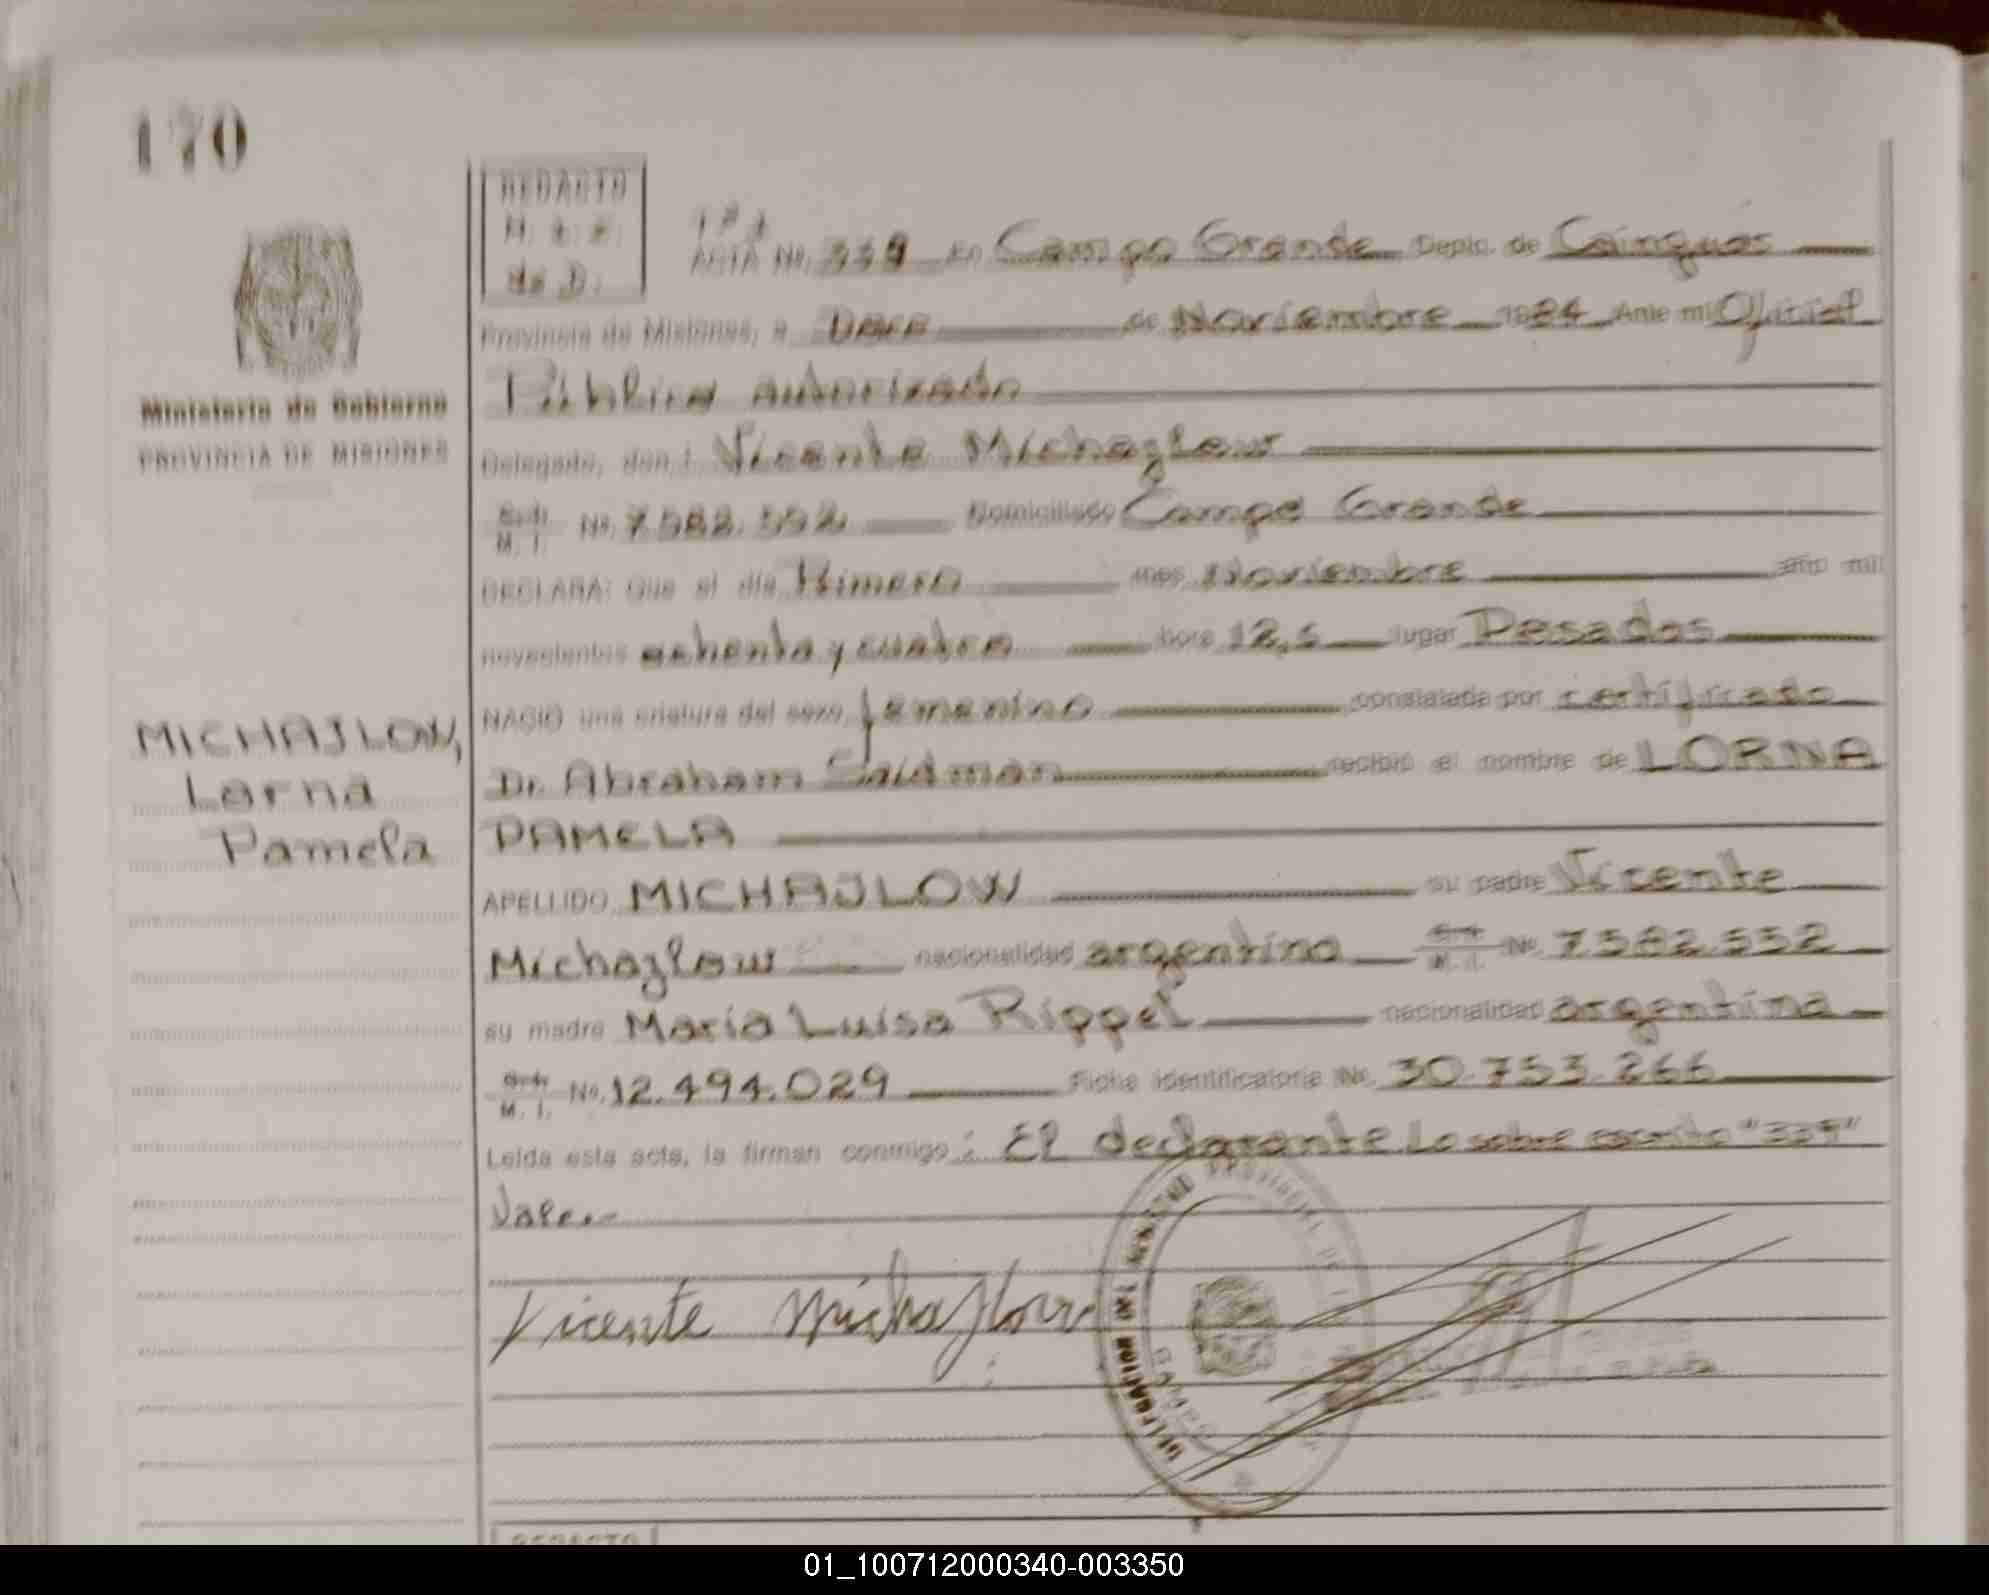 170
REDACTO
de D.
ACTA No. 339 en Campo Grande Depto. de Cainguas
Provincia de Misiones, a Doce de Noviembre 1984 Ante mi Oficial
Público autorizado
Ministerio de Gobierno
PROVINCIA DE MISIONES
Delegado, don: Vicente Michajlow
M. I. No. 7.582.552 Domiciliado Campo Grande
DECLARA: Que el día Primero mes Noviembre año mil
novecientos ochenta y cuatro hora 12,5 lugar Posadas
NACIO una criatura del sexo femenino constatada por certificado
MICHAJLOW,
Lorna
Pamela
Dr. Abraham Saidman recibió el nombre de LORNA
PAMELA
APELLIDO MICHAJLOW su padre Vicente
Michajlow nacionalidad argentino M. I. No. 7582.552
su madre María Luisa Rippel nacionalidad argentina
M. I. No. 12.494.029 Ficha identificatoria No. 30.753.266
Leída esta acta, la firman conmigo: El declarante. Lo sobre escrito "339"
Vale.
Vicente Michajlow
REDACTO
01_100712000340-003350